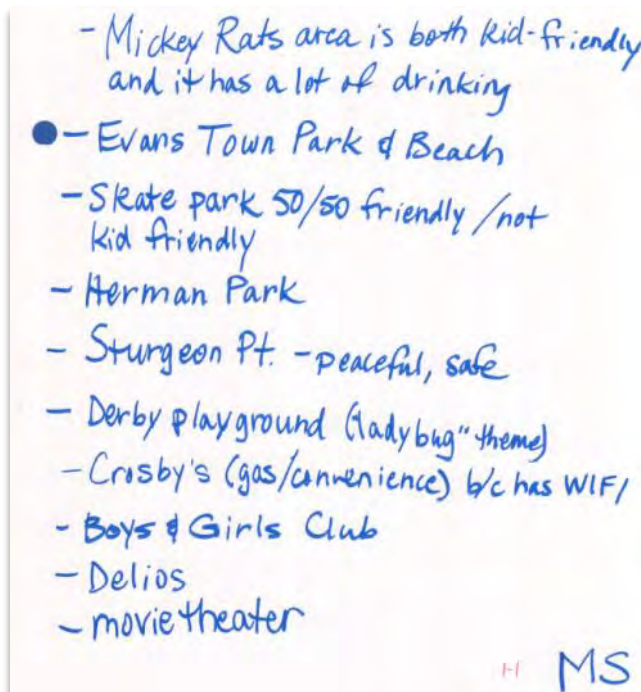 - Mickey Rats area is both kid-friendly
and it has a lot of drinking
- Evans Town Park & Beach
- Skate park 50/50 friendly/not
kid friendly
- Herman Park
- Sturgeon Pt. - peaceful, safe
- Derby playground ("ladybug" theme)
- Crosby's (gas/convenience) b/c has WIFI
- Boys & Girls Club
- Delios
- movie theater
H MS